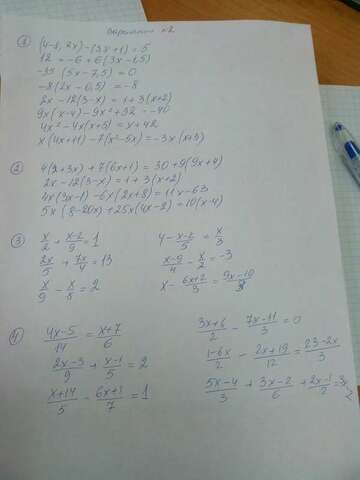 Вариант №2
① (4-8,2x)-(3x+1)=5
12 = -6+6(3x-1,5)
-35(5x-7,5)=0
-8(2x-6,5)=-8
2x-12(3-x)=1+3(x+2)
9x(x-4)-9x²+32=-40
4x²-4x(x+5)=x+42
x(4x+11)-7(x²-5x)=-3x(x+3)
② 4(2+3x)+7(6x+1)=30+9(9x+4)
2x-12(3-x)=1+3(x+2)
4x(3x-1)-6x(2x+8)=11x-63
5x(8-20x)+25x(4x-8)=10(x-4)
③ x/2 + x-2/9 = 1
2x/5 + 7x/4 = 13
x/9 - x/8 = 2
4 - x-2/5 = x/3
x-9/4 - x/2 = -3
x - 6x+2/3 = 9x-10/8
④ 4x-5/14 = x+7/6
2x-3/9 + x-1/5 = 2
x+14/5 - 6x+1/7 = 1
3x+6/2 - 7x-11/3 = 0
1-6x/2 - 2x+19/12 = 23-2x/3
5x-4/3 + 3x-2/6 + 2x-1/2 = 3x-2